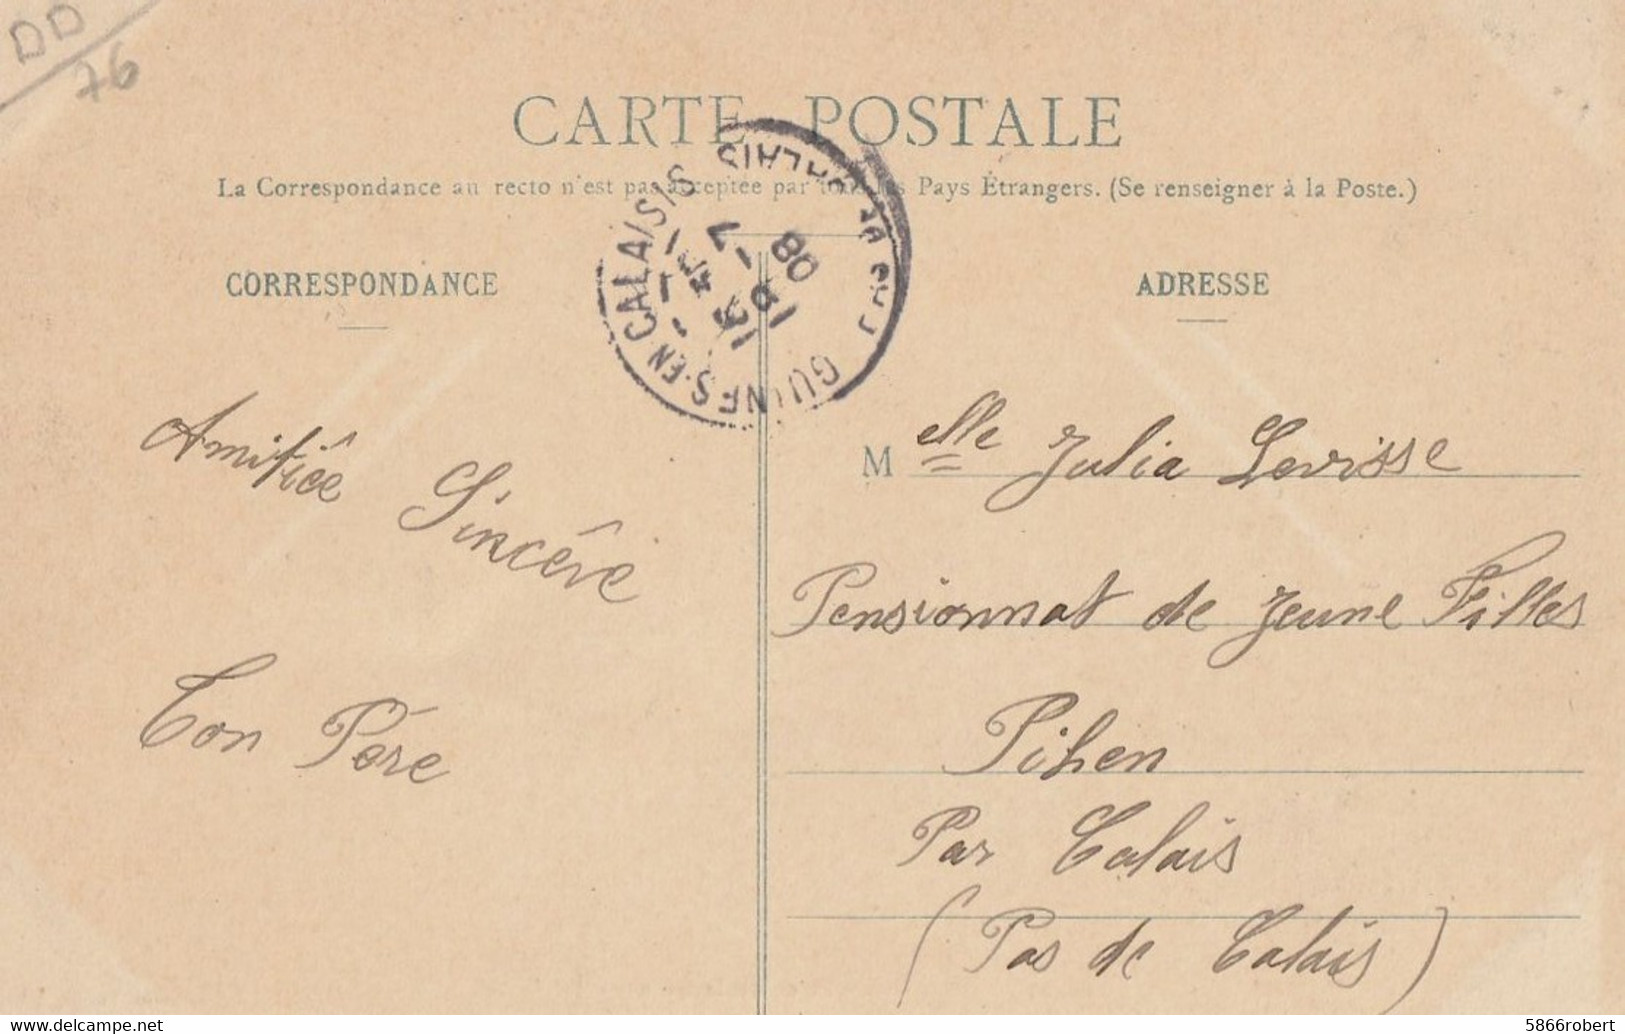 DD
76
CARTE POSTALE
La Correspondance au recto n'est pas acceptée par tous les Pays Étrangers. (Se renseigner à la Poste.)
CORRESPONDANCE
ADRESSE
GUINES-EN-CALAISIS
PAS DE CALAIS
08
Amitiée Sincère
Ton Père
Melle Julia Levisse
Pensionnat de jeune Filles
Pihen
Par Calais
(Pas de Calais)
www.delcampe.net
5866robert